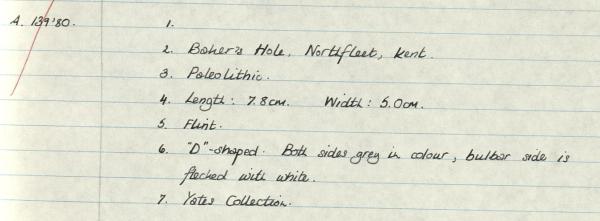 A. 139'80. 1.
2. Baker's Hole, Northfleet, Kent.
3. Paleolithic.
4. Length: 7.8cm. Width: 5.0cm.
5. Flint.
6. "D"-shaped. Both sides grey in colour, bulbar side is
flecked with white.
7. Yates Collection.